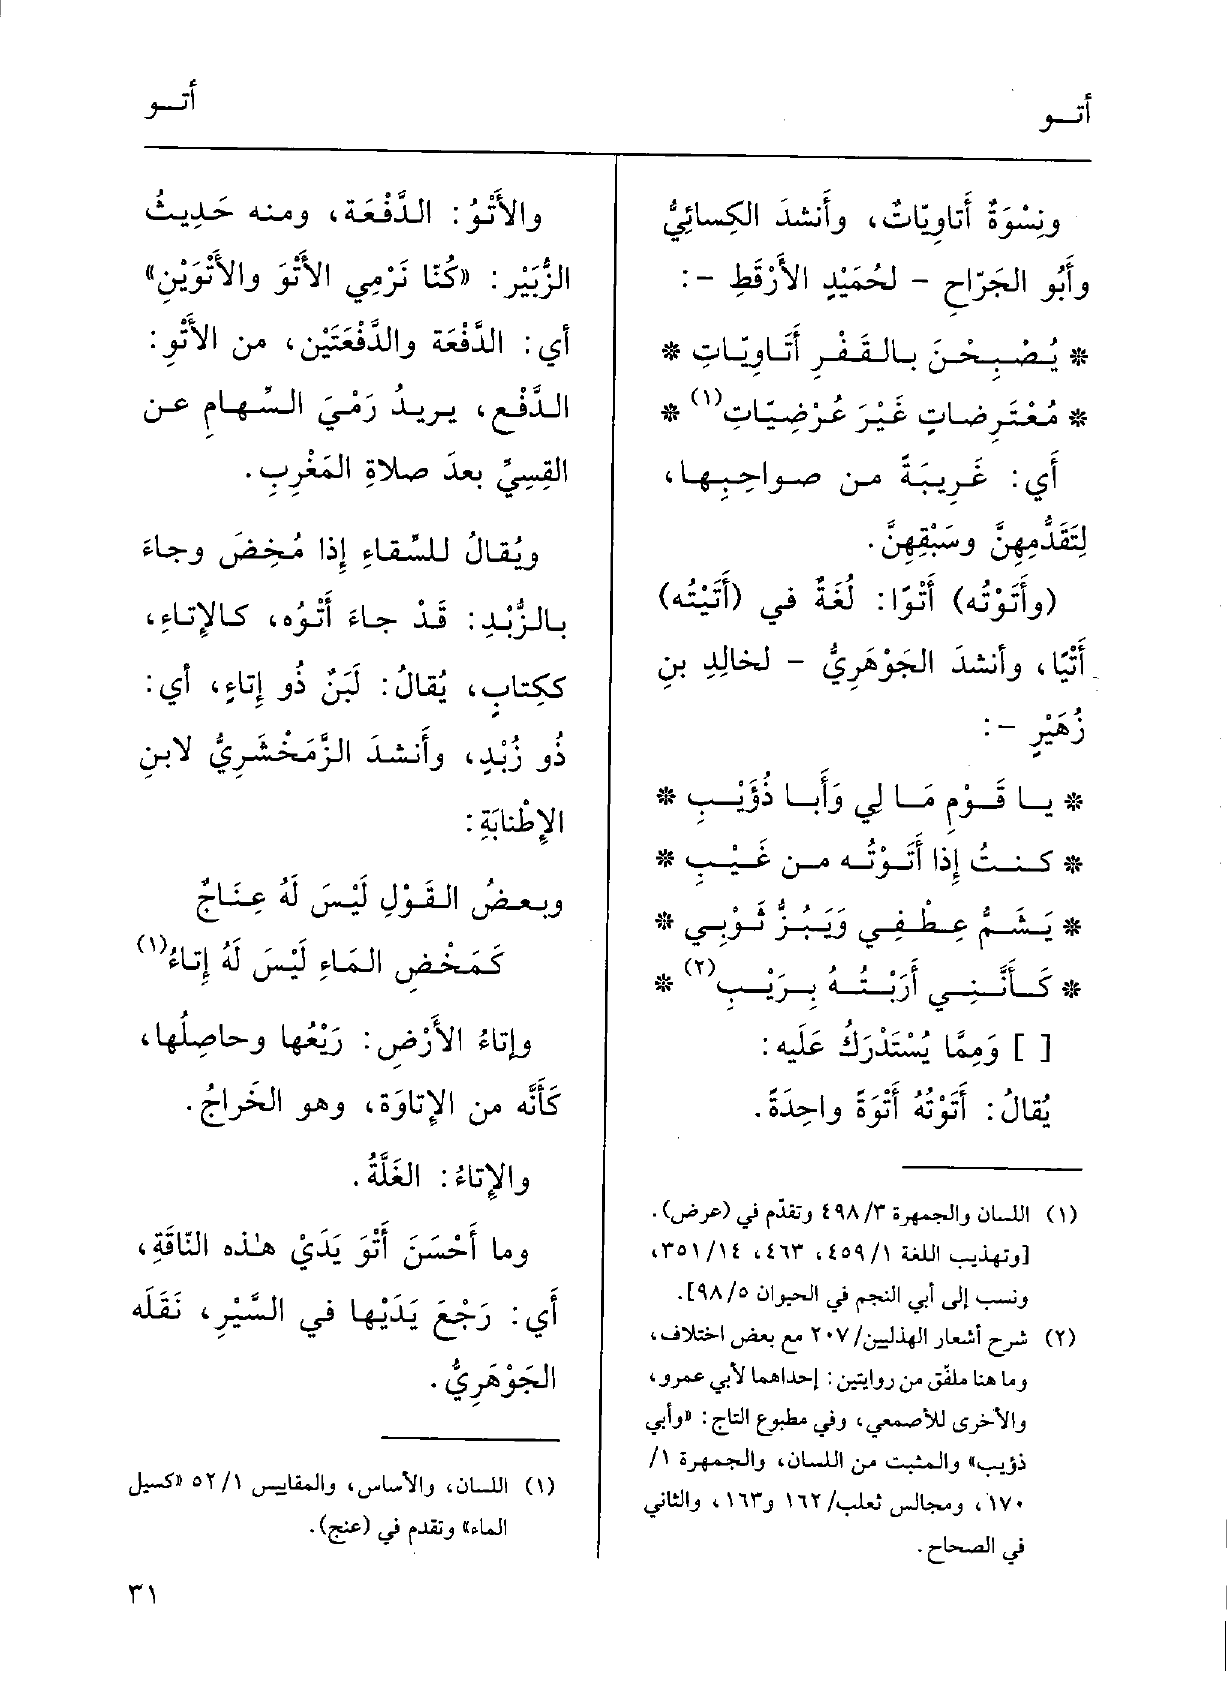 أتـو
أتـو
ونِسْوَةٌ أَتاوِيّاتٌ، وأَنشدَ الكِسائِيُّ
وأَبُو الجَرّاحِ - لحُمَيْدٍ الأَرْقَطِ - :
* يُصْبِحْنَ بالقَفْرِ أَتَاوِيّاتِ *
* مُعْتَرِضاتٍ غَيْرَ عُرْضِيّاتِ(١) *
أَي: غَرِيبَةً من صواحِبِها،
لِتَقَدُّمِهِنَّ وسَبْقِهِنَّ.
(وأَتَوْتُه) أَتْوًا: لُغَةٌ في (أَتَيْتُه)
أَتْيًا، وأنشدَ الجَوْهَرِيُّ - لخالِدِ بنِ
زُهَيْرٍ - :
* يا قَوْمِ مَا لِي وَأَبا ذُؤَيْبِ *
* كنتُ إِذا أَتَوْتُه من غَيْبِ *
* يَشَمُّ عِطْفِي وَيَبُزُّ ثَوْبِي *
* كَأَنَّنِي أَرَبْتُهُ بِرَيْبِ(٢) *
[ ] وَمِمَّا يُسْتَدْرَكُ عَلَيه:
يُقالُ: أَتَوْتُهُ أَتْوَةً واحِدَةً.
(١) اللسان والجمهرة ٤٩٨/٣ وتقدّم في (عرض).
[وتهذيب اللغة ٤٥٩/١، ٤٦٣، ٣٥١/١٤،
ونسب إلى أبي النجم في الحيوان ٩٨/٥].
(٢) شرح أشعار الهذليين/٢٠٧ مع بعض اختلاف،
وما هنا ملفّق من روايتين: إحداهما لأبي عمرو،
والأخرى للأصمعي، وفي مطبوع التاج: «وأبي
ذؤيب» والمثبت من اللسان، والجمهرة ١/
١٧٠، ومجالس ثعلب/١٦٢ و١٦٣، والثاني
في الصحاح.
والأَتْوُ: الدَّفْعَة، ومنه حَدِيثُ
الزُّبَيْرِ: «كُنّا نَرْمِي الأَتْوَ والأَتْوَيْنِ»
أي: الدَّفْعَة والدَّفْعَتَيْن، من الأَتْوِ:
الدَّفْعِ، يريدُ رَمْيَ السِّهامِ عن
القِسِيِّ بعدَ صلاةِ المَغْرِبِ.
ويُقالُ للسِّقاءِ إِذا مُخِضَ وجاءَ
بالزُّبْدِ: قَدْ جاءَ أَتْوُه، كالإِتاءِ،
ككِتابٍ، يُقالُ: لَبَنٌ ذُو إِتاءٍ، أي:
ذُو زُبْدٍ، وأَنشدَ الزَّمَخْشَرِيُّ لابنِ
الإِطْنابَةِ:
وبعضُ القَوْلِ لَيْسَ لَهُ عِنَاجٌ
كَمَخْضِ المَاءِ لَيْسَ لَهُ إِتاءُ(١)
وإِتاءُ الأَرْضِ: رَيْعُها وحاصِلُها،
كَأَنَّه من الإِتاوَة، وهو الخَراجُ.
والإِتاءُ: الغَلَّةُ.
وما أَحْسَنَ أَتْوَ يَدَيْ هذه النّاقَةِ،
أَي: رَجْعَ يَدَيْها في السَّيْرِ، نَقَلَه
الجَوْهَرِيُّ.
(١) اللسان، والأساس، والمقاييس ٥٢/١ «كسيل
الماء» وتقدم في (عنج).
٣١